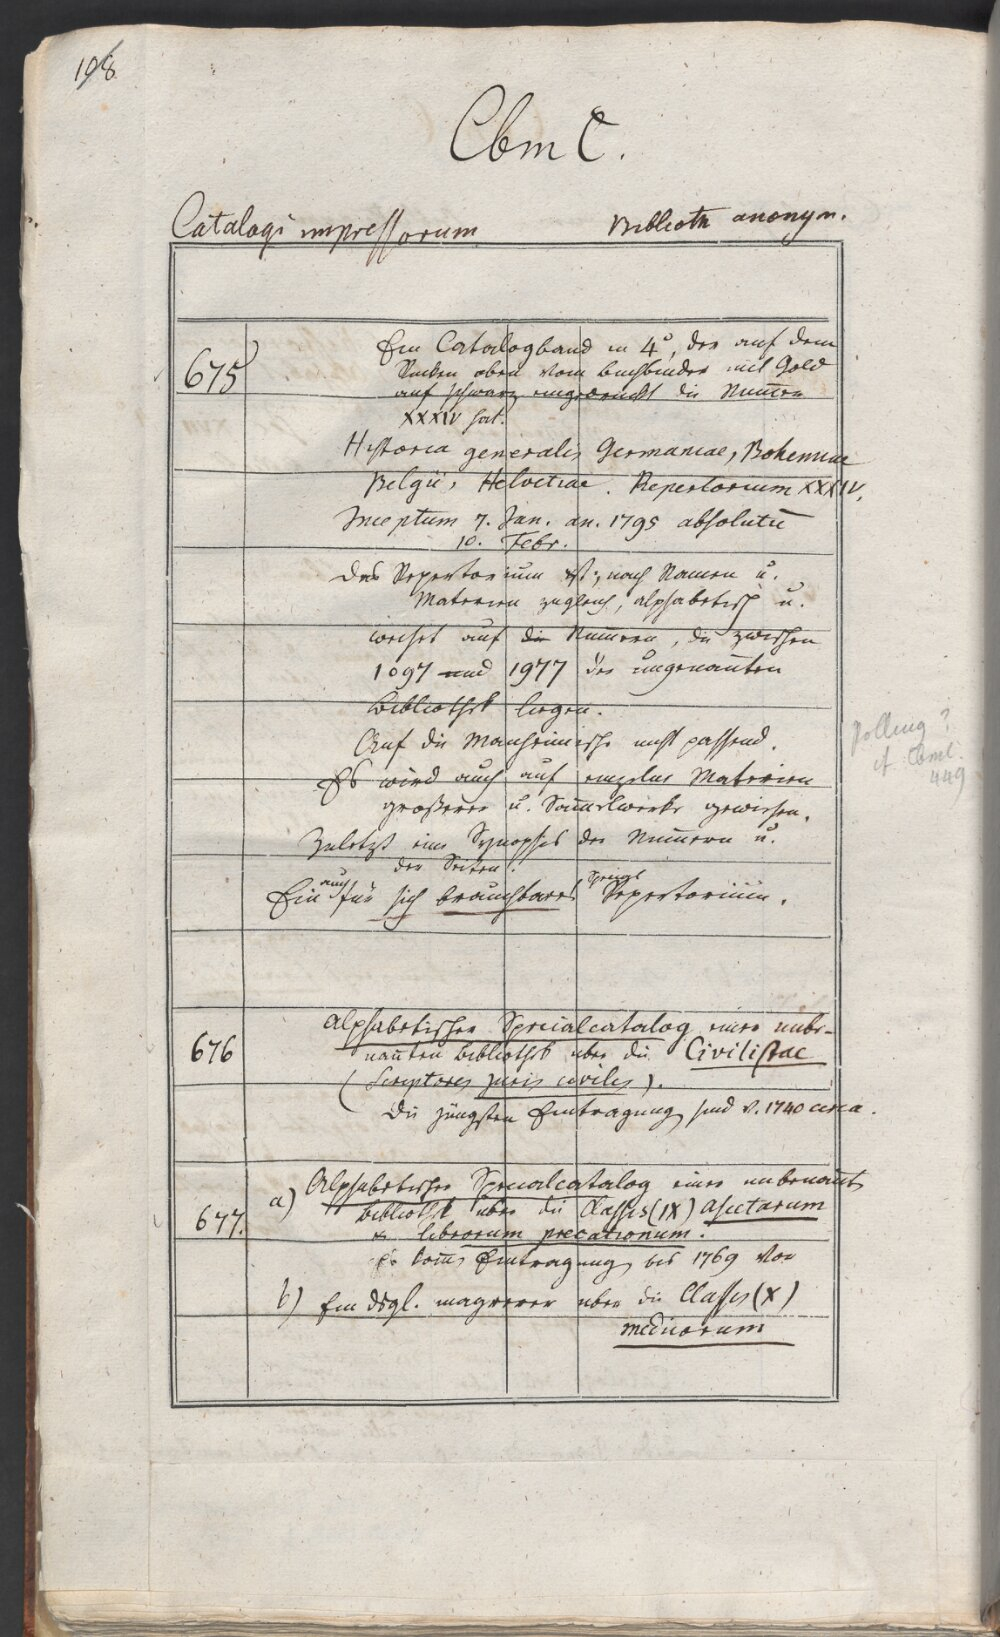 198
Cbm C.
Catalogi impressorum Biblioth anonym.
675
Ein Catalogband in 4°, der auf dem
Rücken oben vom Buchbinder mit Gold
auf schwarz eingedruckt die Num̄er
XXXIV hat.
Historia generalis Germaniae, Bohemiae
Belgii, Helvetiae. Repertorium XXXIV.
Inceptum 7. Jan. an. 1795 absolutū
10. Febr.
Das Repertorium ist, nach Namen u.
Materien zugleich, alphabetisch u.
weiset auf die Num̄ern, die zwischen
1097 und 1977 der ungenan̄ten
Bibliothek liegen.
Auf die Manheimische nicht passend.
Es wird auch auf einzelne Materien
größerer u. Sam̄elwerke gewiesen.
Zuletzt eine Synopsis der Num̄ern u.
der Seiten.
Ein auch für sich brauchbares Spezial Repertorium.
Polling?
cf. Cbm C.
449
676
Alphabetischer Specialcatalog einer unbe-
nan̄ten Bibliothek über die Civilistae
(Scriptores juris civilis).
Die jüngsten Eintragung sind v. 1740 circa.
677.
a) Alphabetischer Specialcatalog einer unbenan̄t
Bibliothek über die Classis (IX) Ascetarum
& librorum precationum.
Es kom̄ Eintragung bis 1769 vor
b) Ein dsgl. magerer über die Classis (X)
medicorum